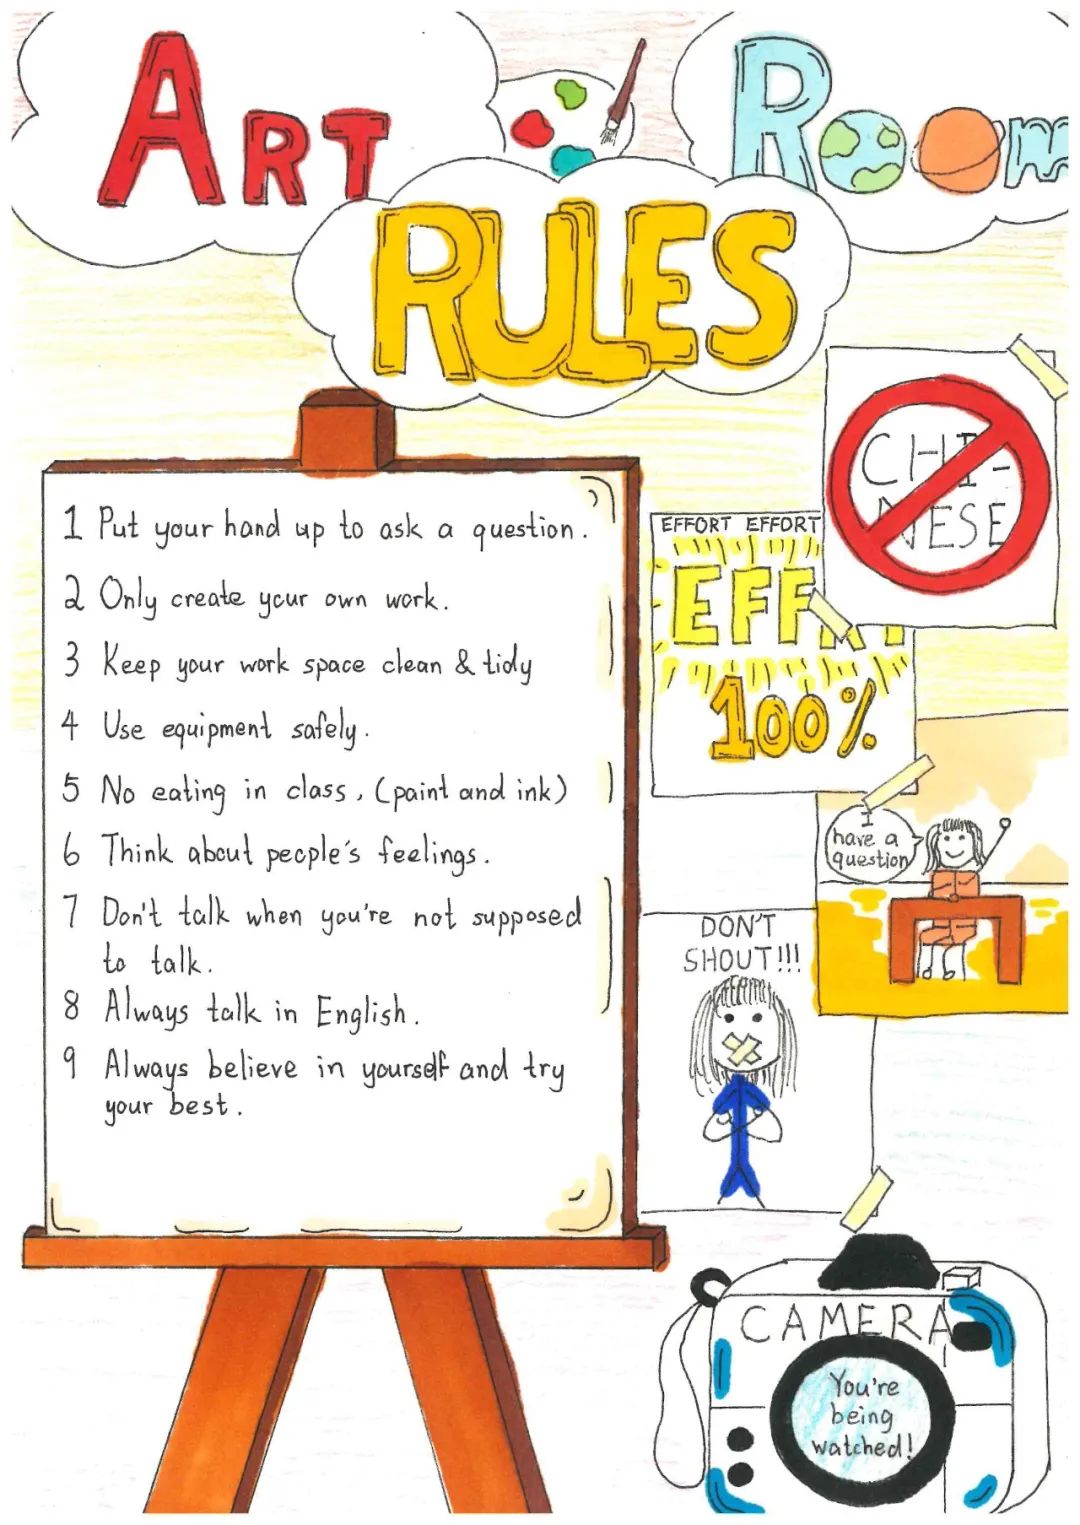 ART ROOM
RULES
1 Put your hand up to ask a question.
2 Only create your own work.
3 Keep your work space clean & tidy
4 Use equipment safely.
5 No eating in class, (paint and ink)
6 Think about people's feelings.
7 Don't talk when you're not supposed
to talk.
8 Always talk in English.
9 Always believe in yourself and try
your best.
CHI-
NESE
EFFORT EFFORT
EFFORT
100%
I
have a
question
DON'T
SHOUT!!!
CAMERA
You're
being
watched!